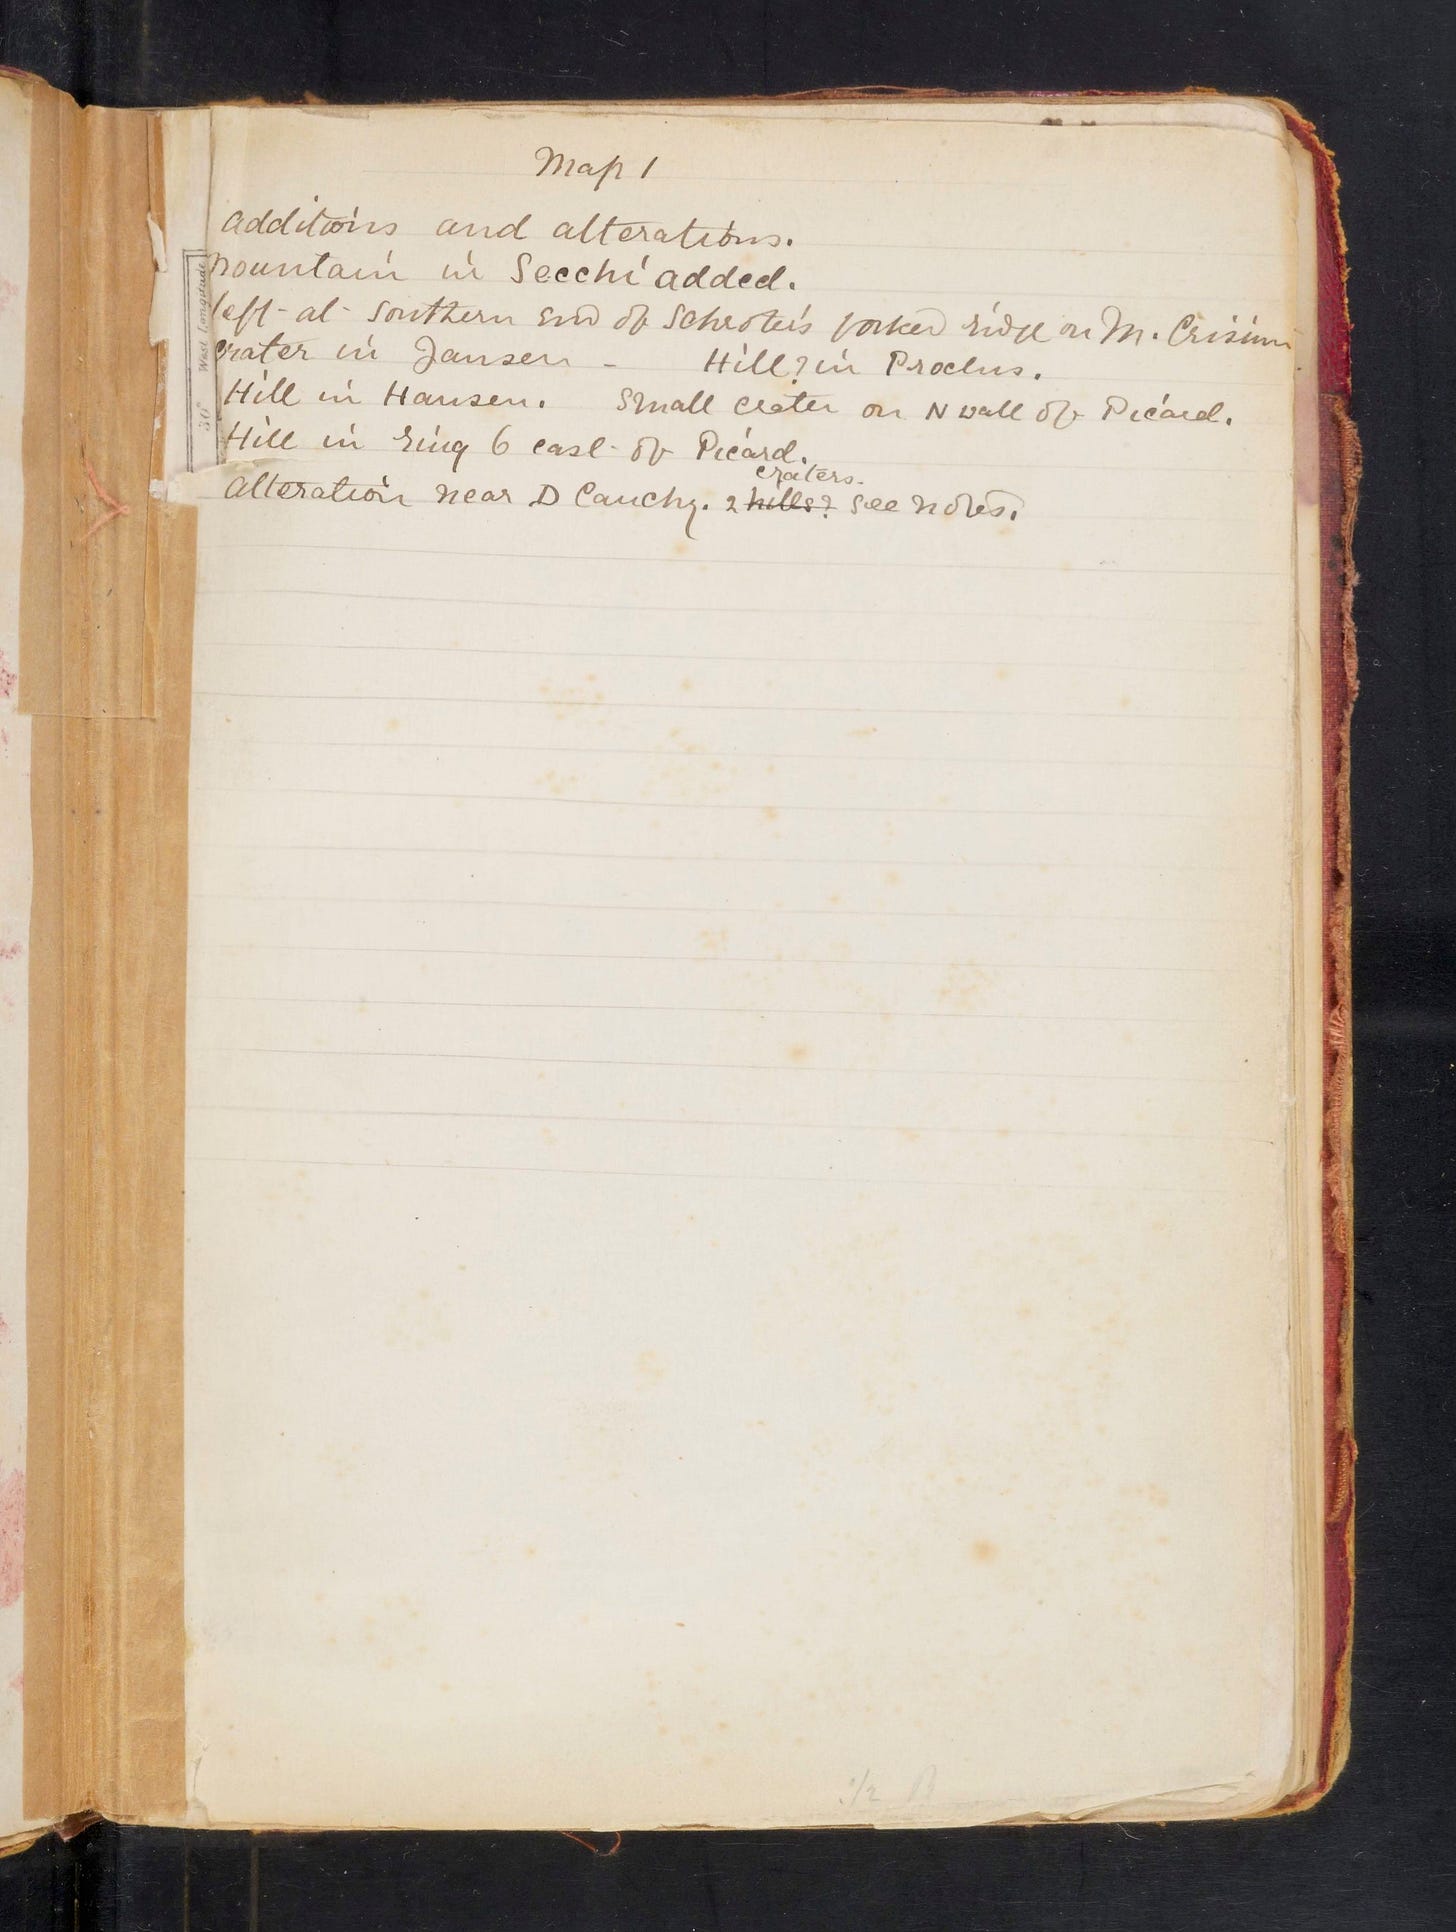 Map 1
additions and alterations.
Mountain in Secchi added.
left at Southern end of Schroter's forked ridge on M. Crisium
crater in Jansen - Hill? in Proclus.
Hill in Hansen. Small crater on N wall of Picard.
Hill in ring 6 east of Picard.
craters.
alteration near D Cauchy. 2 hills? See notes.
West Longitude
50°